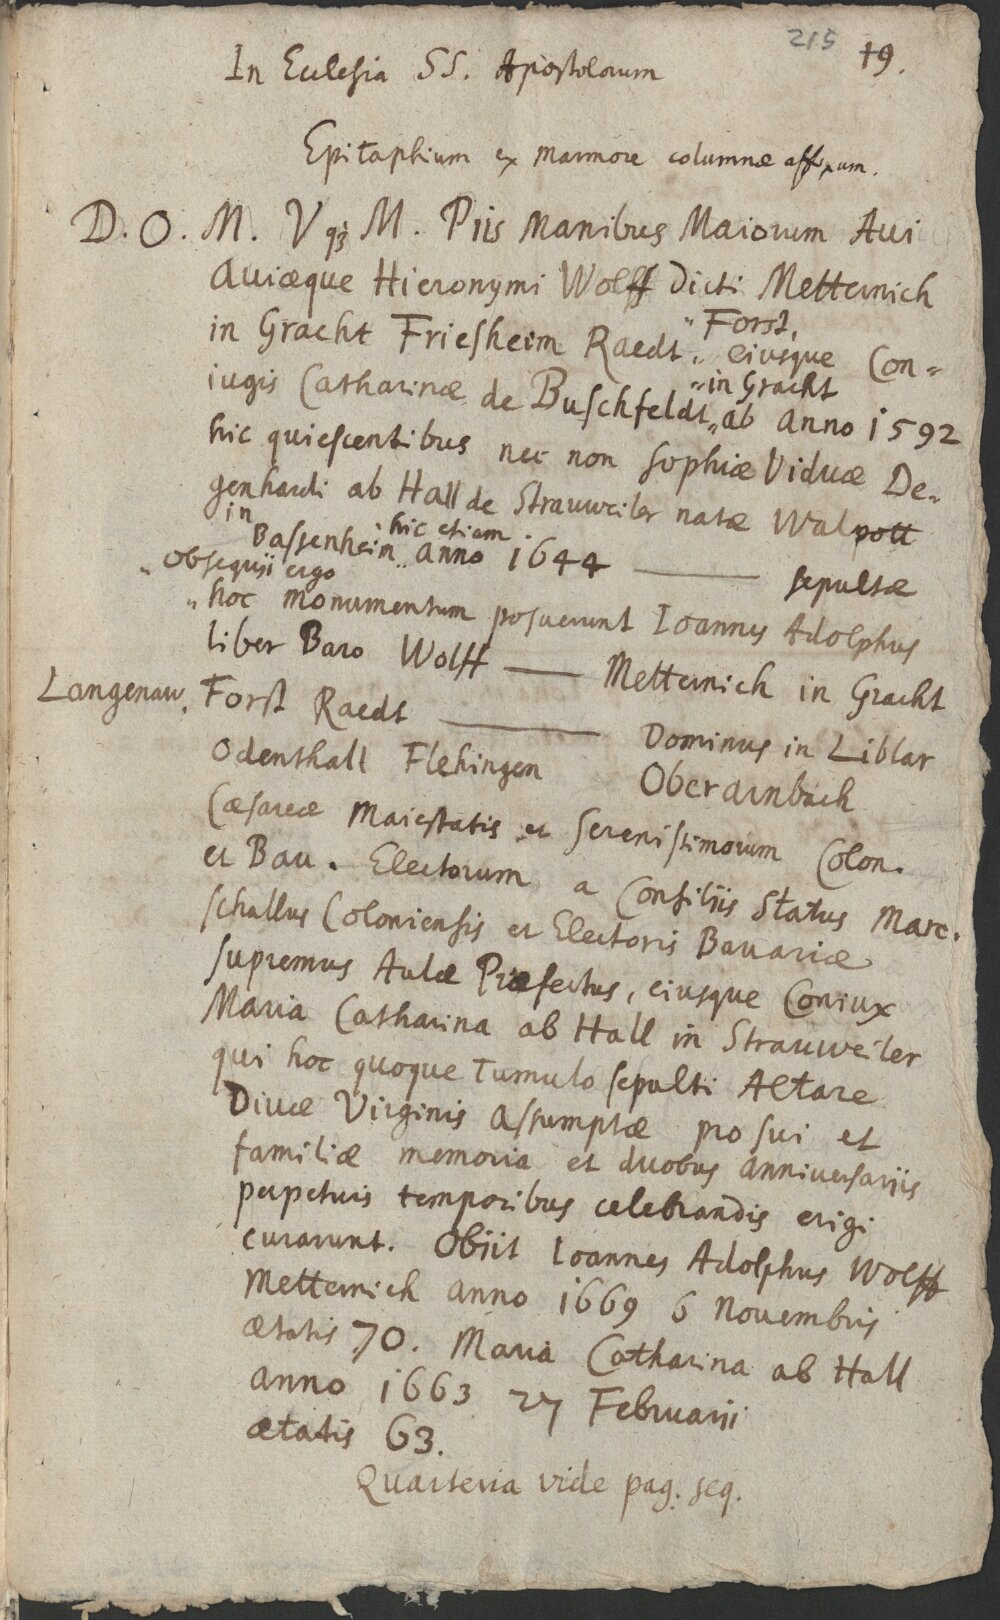 215 19.
In Ecclesia SS. Apostolorum
Epitaphium ex marmore columnæ affixum.
D. O. M. Vqȝ M. Piis Manibus Maiorum Aui
Auiæque Hieronymi Wolff dicti Metternich
„ Forst,
in Gracht Friesheim Raedt „ eiusque Con=
„ in Gracht
iugis Catharinæ de Buschfeldt „ ab anno 1592
hic quiescentibus nec non Sophiæ Viduæ De=
genhardi ab Hall de Strauweiler natæ Walpott
in hic etiam
Bassenhein „ anno 1644 —— sepultæ
„ obsequii ergo
„ hoc monumentum posuerunt Ioannes Adolphus
liber Baro Wolff —— Metternich in Gracht
Langenaw, Forst Raedt —— Dominus in Liblar
Odenthall Flehingen Oberarnbach
Cæsareæ Maiestatis et Serenissimorum Colon.
et Bau. Electorum a Consiliis Status Marc.
schallus Coloniensis et Electoris Bauariæ
supremus Aulæ Præfectus, eiusque Coniux
Maria Catharina ab Hall in Strauweiler
qui hoc quoque tumulo sepulti Altare
Diuæ Virginis Assumptæ pro sui et
familiæ memoria et duobus anniuersariis
perpetuis temporibus celebrandis erigi
curarunt. Obiit Ioannes Adolphus Wolff
Metternich anno 1669 6 Nouembris
ætatis 70. Maria Catharina ab Hall
anno 1663 27 Februarii
ætatis 63.
Quarteria vide pag. seq.